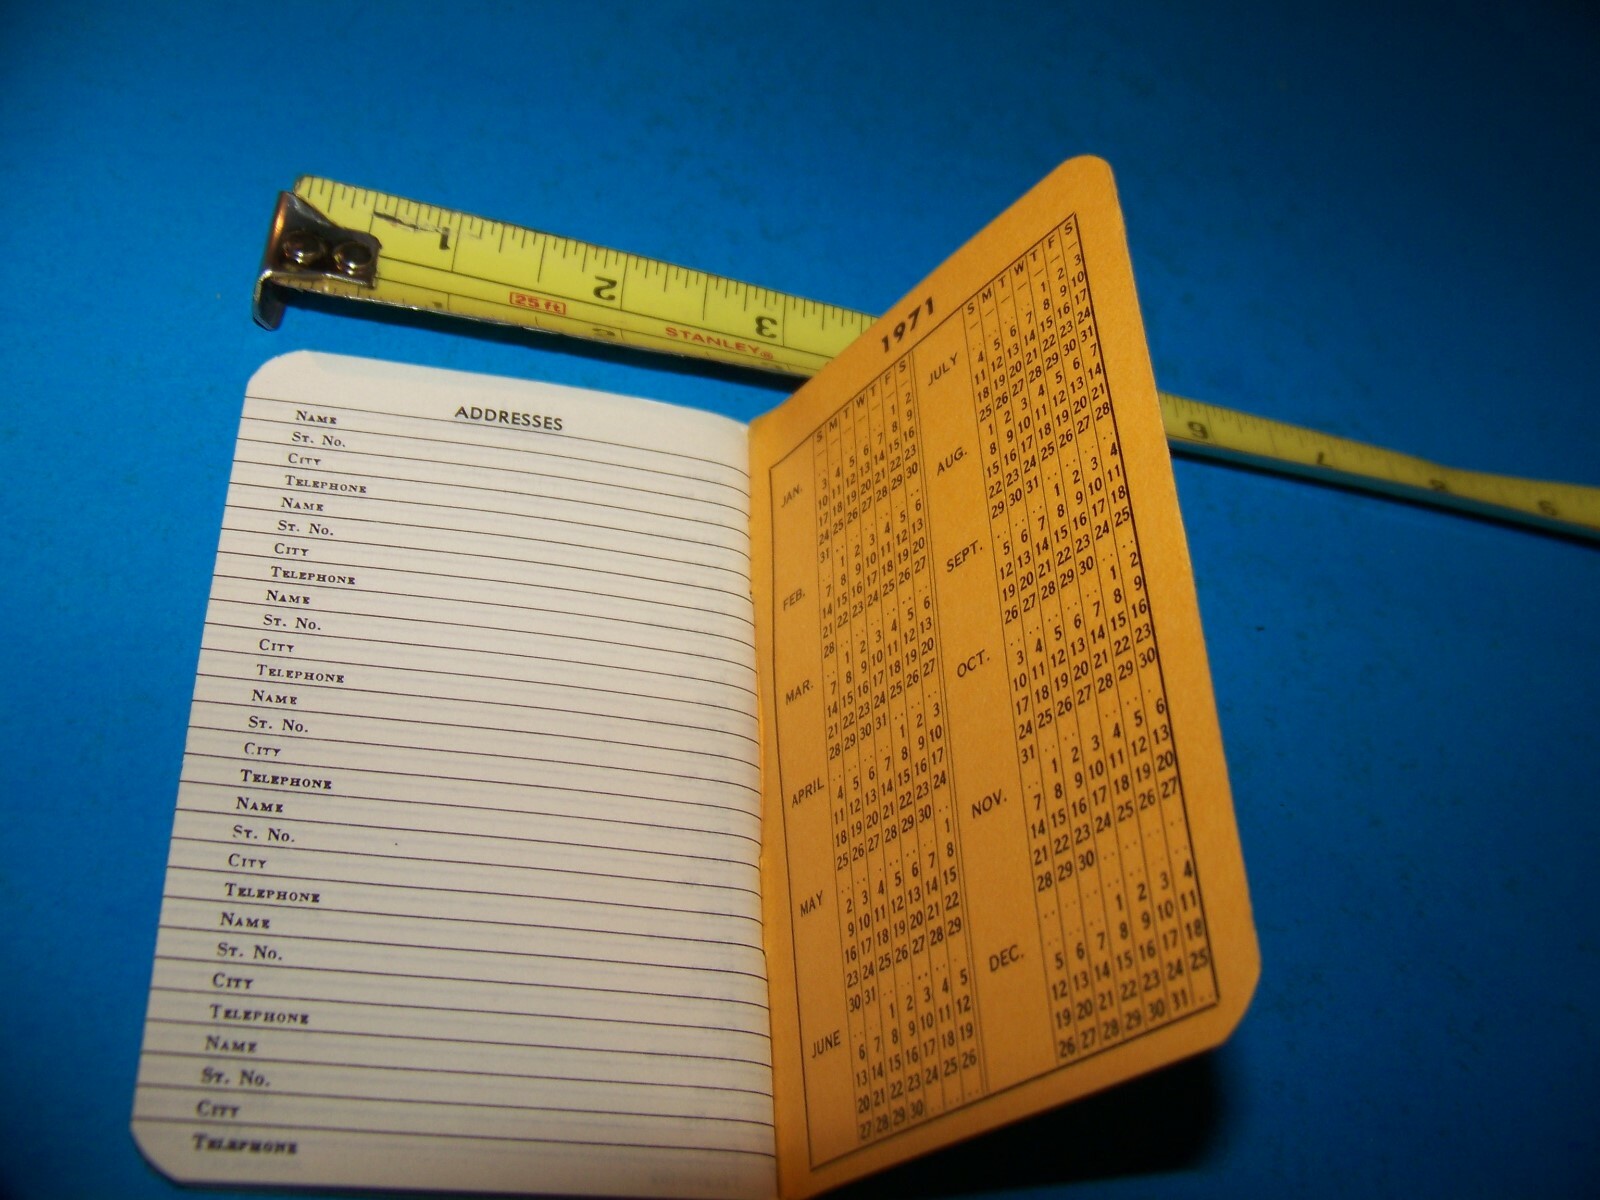 1
2
3
25 ft
STANLEY®
6
7
8
9
ADDRESSES
NAME
ST. NO.
CITY
TELEPHONE
NAME
ST. NO.
CITY
TELEPHONE
NAME
ST. NO.
CITY
TELEPHONE
NAME
ST. NO.
CITY
TELEPHONE
NAME
ST. NO.
CITY
TELEPHONE
NAME
ST. NO.
CITY
TELEPHONE
NAME
ST. NO.
CITY
TELEPHONE
1971
S M T W T F S
JAN.
1 2
3 4 5 6 7 8 9
10 11 12 13 14 15 16
17 18 19 20 21 22 23
24 25 26 27 28 29 30
31
FEB.
1 2 3 4 5 6
7 8 9 10 11 12 13
14 15 16 17 18 19 20
21 22 23 24 25 26 27
28
MAR.
1 2 3 4 5 6
7 8 9 10 11 12 13
14 15 16 17 18 19 20
21 22 23 24 25 26 27
28 29 30 31
APRIL
1 2 3
4 5 6 7 8 9 10
11 12 13 14 15 16 17
18 19 20 21 22 23 24
25 26 27 28 29 30
MAY
1
2 3 4 5 6 7 8
9 10 11 12 13 14 15
16 17 18 19 20 21 22
23 24 25 26 27 28 29
30 31
JUNE
1 2 3 4 5
6 7 8 9 10 11 12
13 14 15 16 17 18 19
20 21 22 23 24 25 26
27 28 29 30
S M T W T F S
JULY
1 2 3
4 5 6 7 8 9 10
11 12 13 14 15 16 17
18 19 20 21 22 23 24
25 26 27 28 29 30 31
AUG.
1 2 3 4 5 6 7
8 9 10 11 12 13 14
15 16 17 18 19 20 21
22 23 24 25 26 27 28
29 30 31
SEPT.
1 2 3 4
5 6 7 8 9 10 11
12 13 14 15 16 17 18
19 20 21 22 23 24 25
26 27 28 29 30
OCT.
1 2
3 4 5 6 7 8 9
10 11 12 13 14 15 16
17 18 19 20 21 22 23
24 25 26 27 28 29 30
31
NOV.
1 2 3 4 5 6
7 8 9 10 11 12 13
14 15 16 17 18 19 20
21 22 23 24 25 26 27
28 29 30
DEC.
1 2 3 4
5 6 7 8 9 10 11
12 13 14 15 16 17 18
19 20 21 22 23 24 25
26 27 28 29 30 31